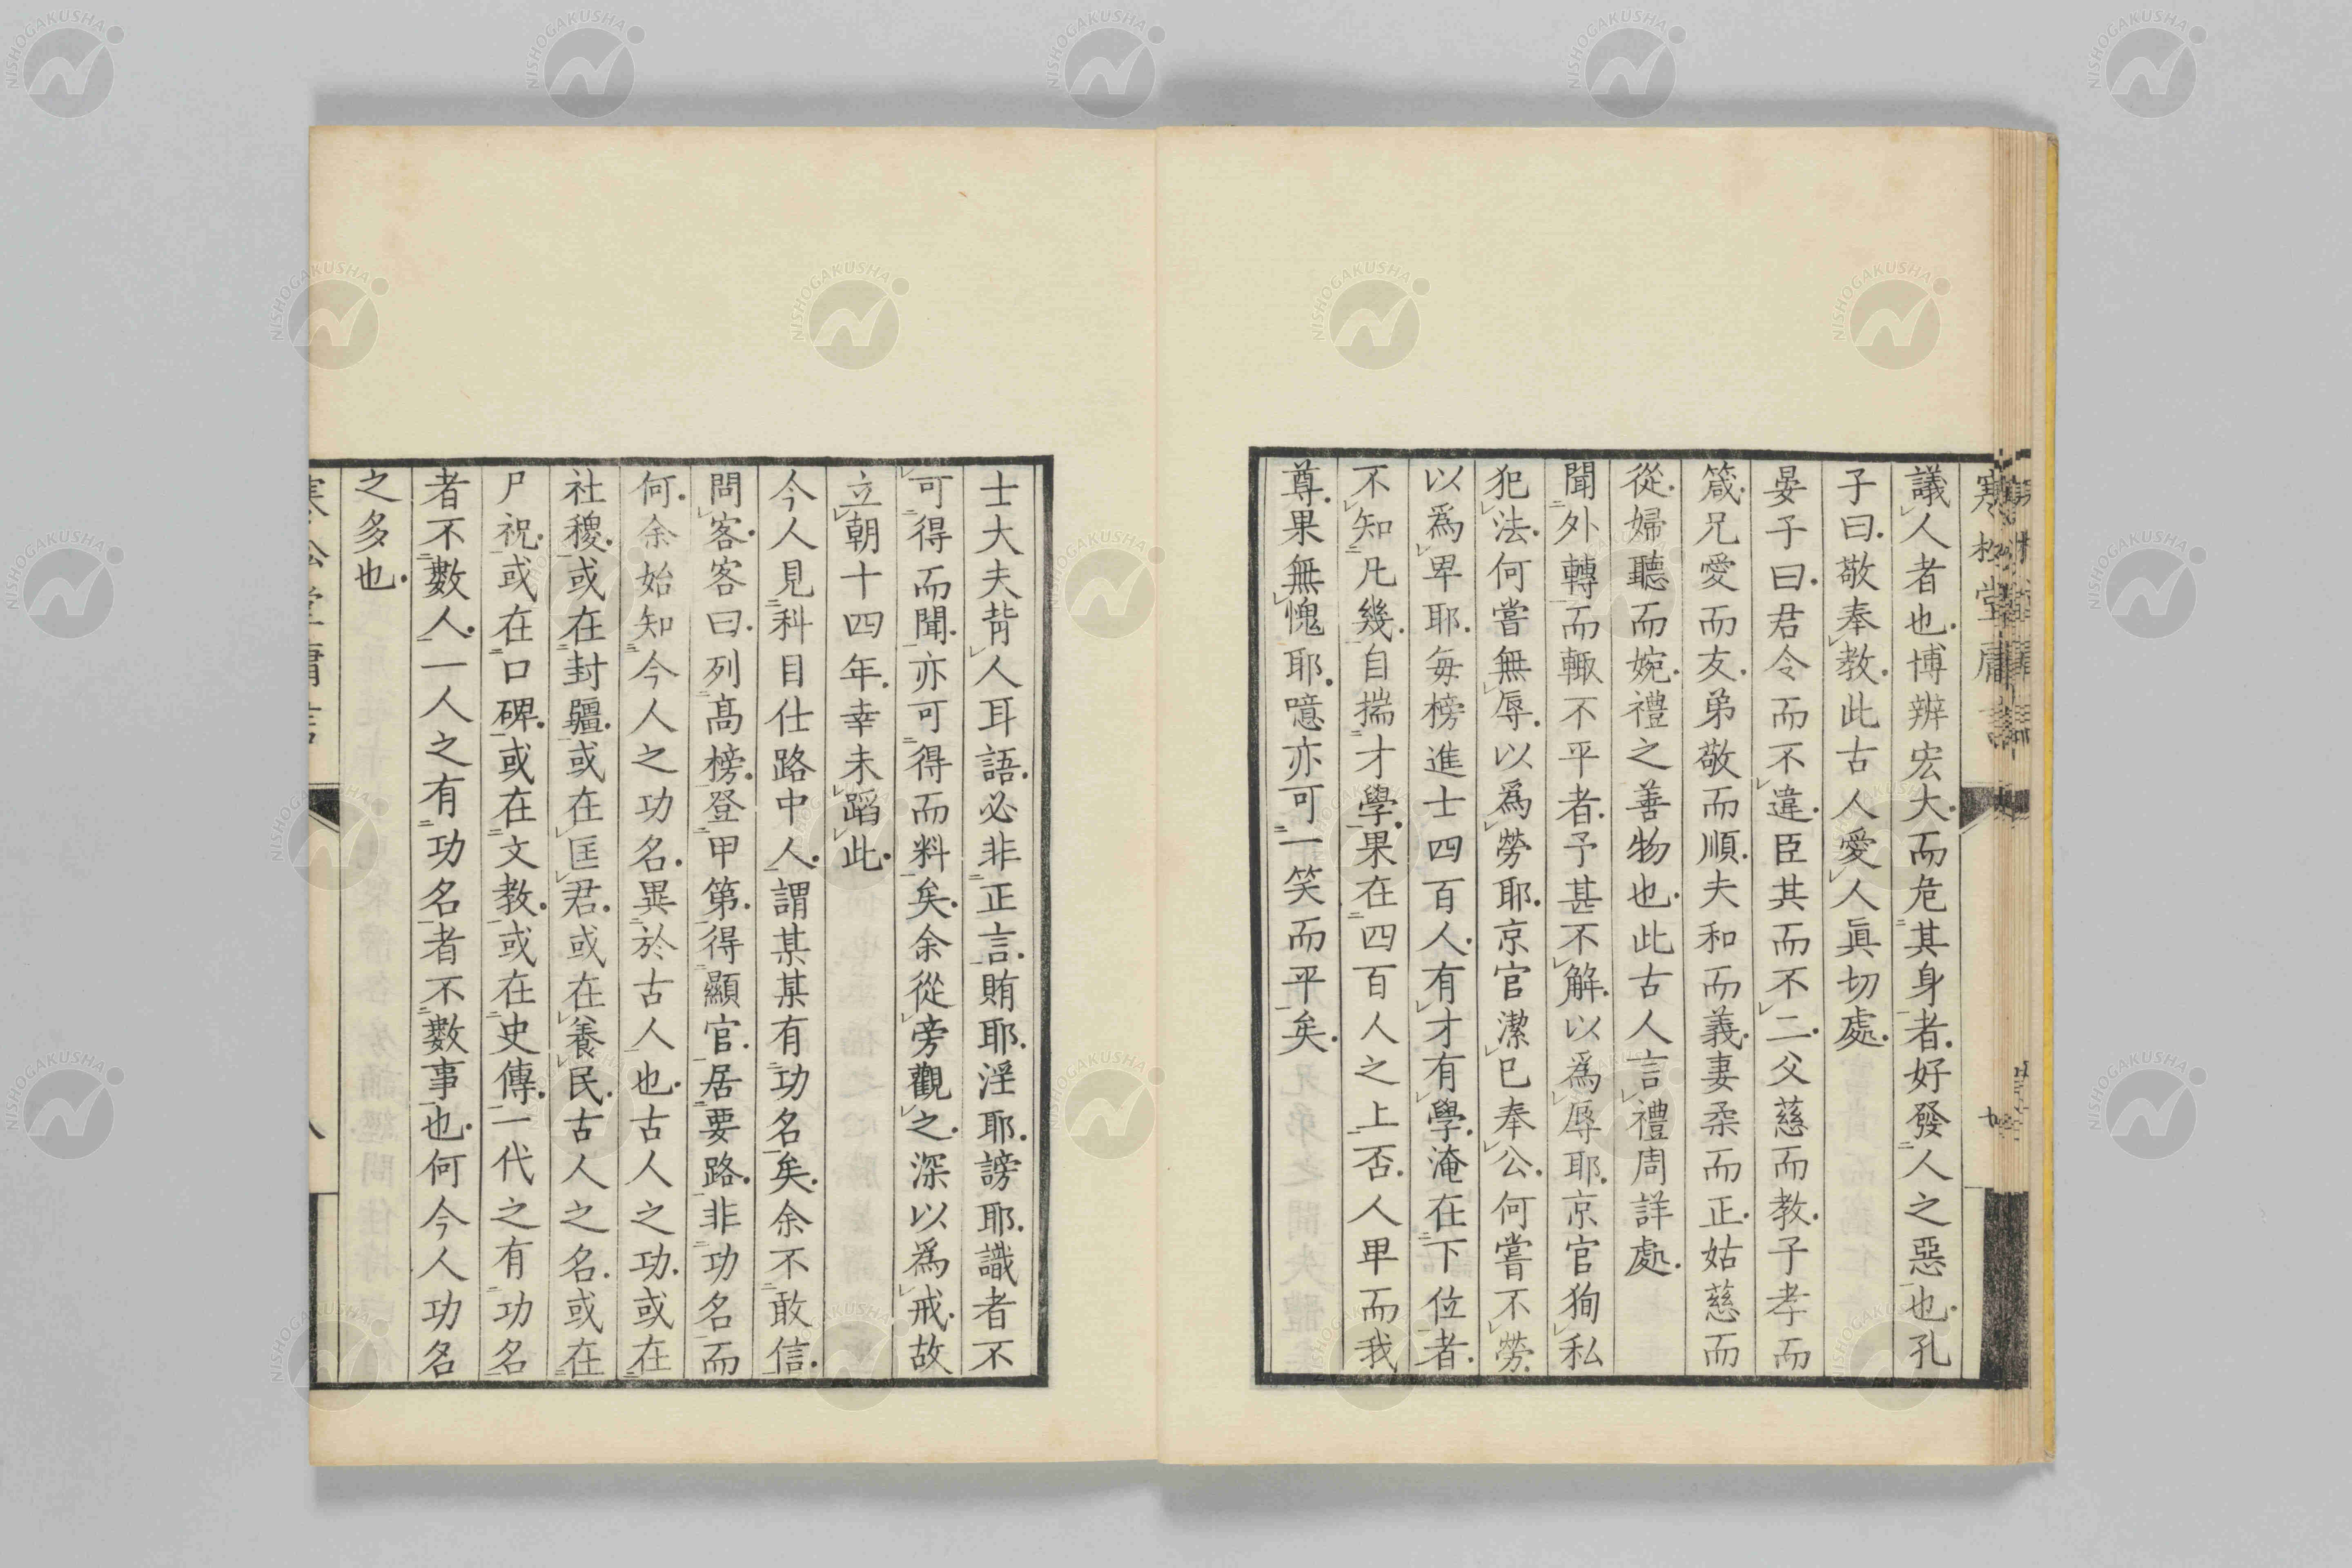 寒松堂庸言
議人者也博辨宏大而危其身者好發人之惡也孔
子曰敬奉教此古人愛人眞切處
晏子曰君令而不違臣其而不二父慈而教子孝而
箴兄愛而友弟敬而順夫和而義妻柔而正姑慈而
從婦聽而婉禮之善物也此古人言禮周詳處
聞外轉而輙不平者予甚不解以爲辱耶京官狥私
犯法何嘗無辱以爲勞耶京官潔已奉公何嘗不勞
以爲卑耶毎榜進士四百人有才有學淹在下位者
不知凡幾自揣才學果在四百人之上否人卑而我
尊果無愧耶噫亦可一笑而平矣
士大夫背人耳語必非正言賄耶淫耶謗耶識者不
可得而聞亦可得而料矣余從旁觀之深以爲戒故
立朝十四年幸未蹈此
今人見科目仕路中人謂某某有功名矣余不敢信
問客客曰列髙榜登甲第得顯官居要路非功名而
何余始知今人之功名異於古人也古人之功或在
社稷或在封疆或在匡君或在養民古人之名或在
尸祝或在口碑或在文教或在史傳一代之有功名
者不數人一人之有功名者不數事也何今人功名
之多也
NISHOGAKUSHA